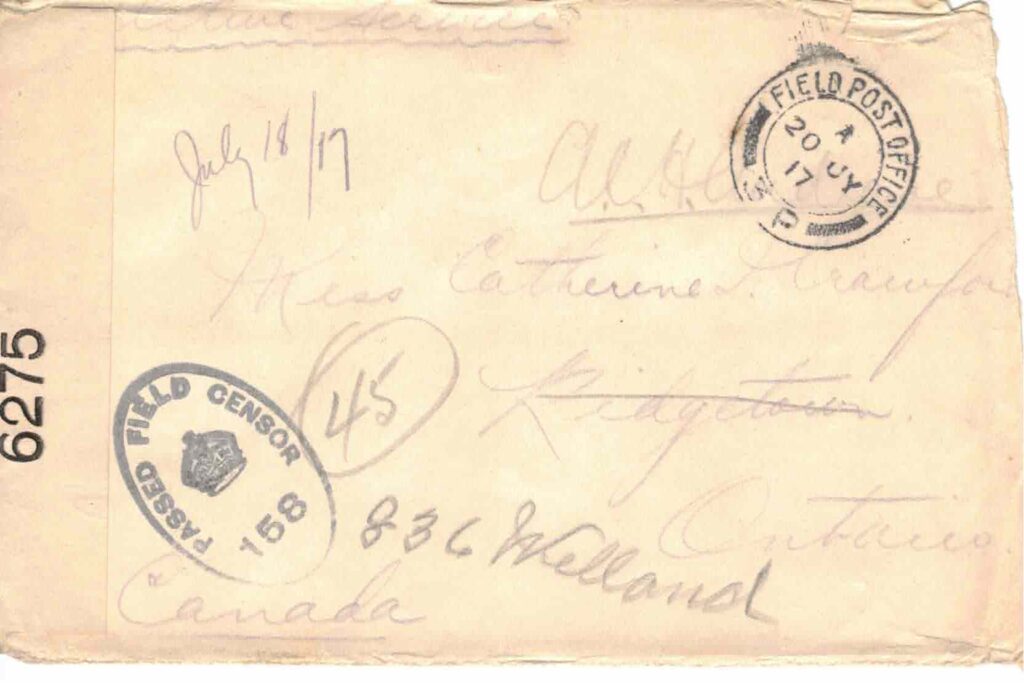 Active Service
July 18/17
FIELD POST OFFICE
A
20 JY
17
3 P
Miss Catherine L. Crawford
45
Ridgetown
Ontario
836 Welland
Canada
PASSED FIELD CENSOR
158
6275